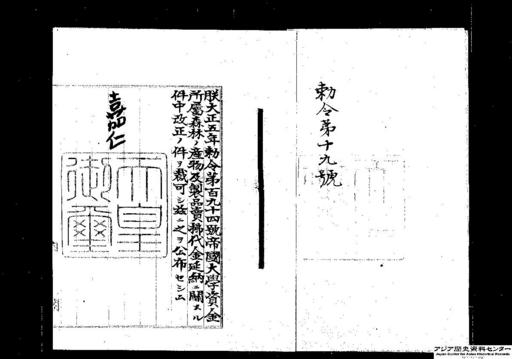 勅令第十九號
朕大正五年勅令第百九十四號帝國大學資金
所屬森林ノ産物及製品賣拂代金延納ニ關スル
件中改正ノ件ヲ裁可シ茲ニ之ヲ公布セシム
嘉仁
天皇
御璽
アジア歴史資料センター
Japan Center for Asian Historical Records